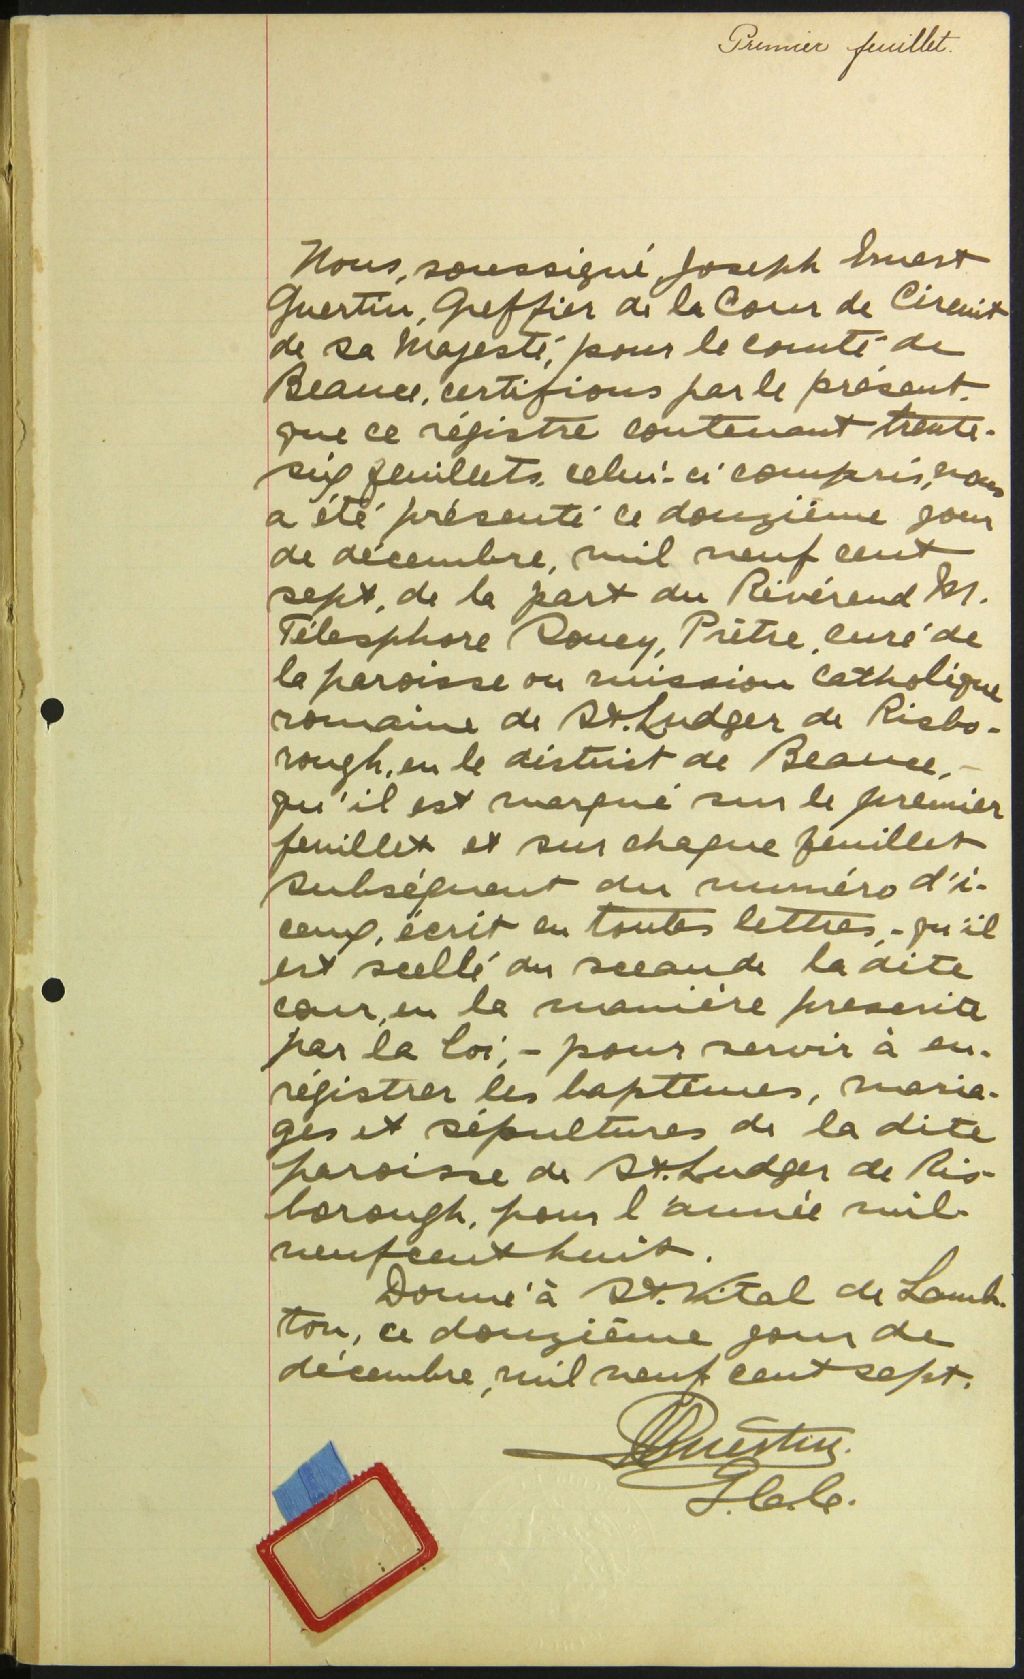 Premier feuillet.
Nous, soussigné, Joseph Ernest
Guertin, Greffier de la Cour de Circuit
de Sa Majesté, pour le comté de
Beauce, certifions par le présent,
que ce régistre contenant trente-
six feuillets, celui-ci compris, nous
a été présenté ce douzième jour
de décembre, mil neuf cent
sept, de la part du Révérend M.
Télesphore Soucy, Prêtre, curé de
la paroisse ou mission catholique
romaine de St. Ludger de Risbo-
rough, en le district de Beauce, -
qu'il est marqué sur le premier
feuillet et sur chaque feuillet
subséquent du numéro d'i-
ceux, écrit en toutes lettres, - qu'il
est scellé du sceau de la dite
cour, en la manière prescrite
par la loi, - pour servir à en-
régistrer les baptêmes, maria-
ges et sépultures de la dite
paroisse de St. Ludger de Ris-
borough, pour l'année mil-
neuf cent huit.
Donné à St. Vital de Lamb-
ton, ce douzième jour de
décembre, mil neuf cent sept.
Guertin.
G.C.C.